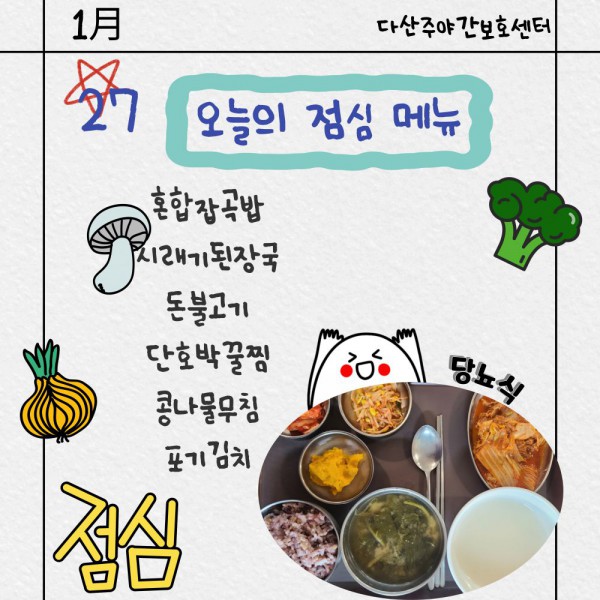 1月
다산주야간보호센터
27
오늘의 점심 메뉴
혼합잡곡밥
시래기된장국
돈불고기
단호박꿀찜
콩나물무침
포기김치
당뇨식
점심